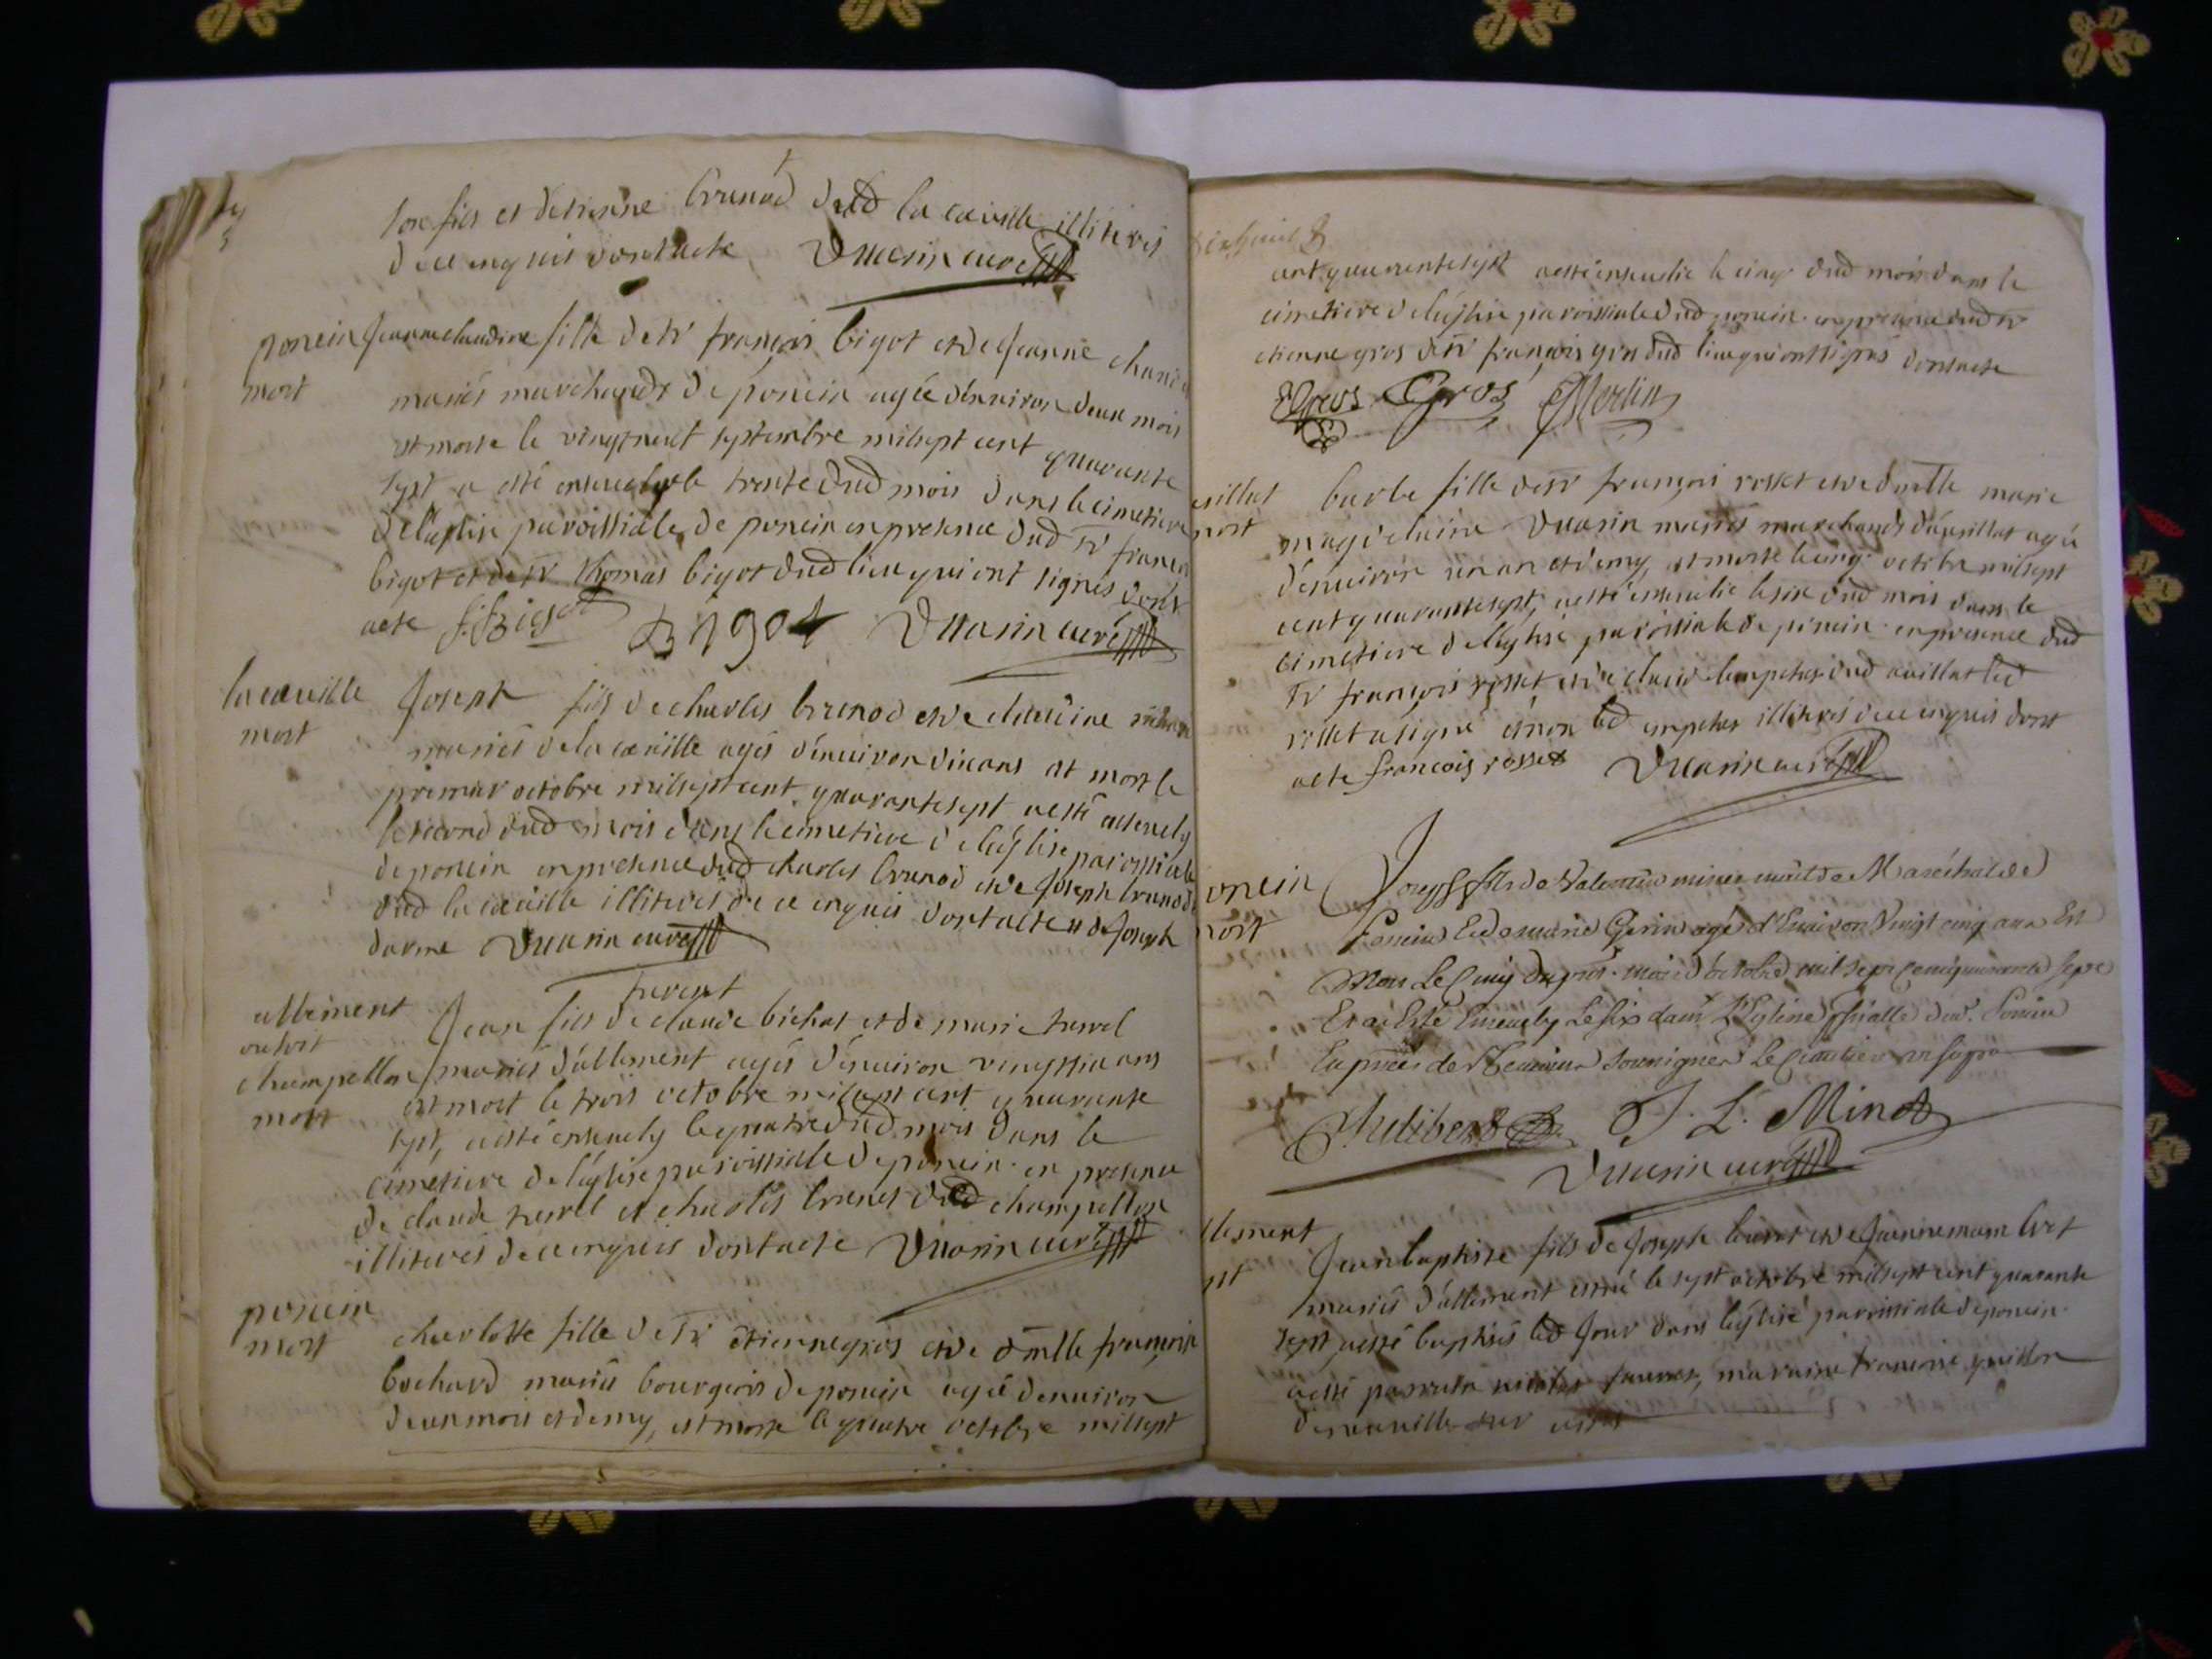 son fils et detienne brunod dud la cueille illiterés
de ce enquis dont acte Vuarin curé
poncin
mort
jeanne claudine fille de sr françois bigot et de jeanne
mariés marchands de poncin agée d'environ deux mois
est morte le vingtneuf septembre milsept cent quarante
sept a esté ensevelie le trente dud mois dans le cimetiere
de leglise paroissiale de poncin en presence dud sr françois
bigot et de sr thomas bigot dud lieu qui ont signés dont
acte Bigot Vuarin curé
la cueille
mort
Joseph fils de charles brunod et de claudine
mariés de la cueille agés d'environ dix ans est mort le
premier octobre milsept cent quarante sept a esté ensevely
le second dud mois dans le cimetiere de leglise paroissiale
de poncin en presence dud charles brunod et de Joseph brunod
dud la cueille illiterés de ce enquis dont acte Joseph
Vuarin curé
allement
ou soit
champellon
mort
Jean fils de claude bichat et de marie
mariés d'allement agés d'environ vingt six ans
est mort le trois octobre milsept cent quarante
sept, a esté ensevely le quatre dud mois dans le
cimetiere de leglise paroissiale de poncin en presence
de claude et charles dud champellon
illiterés de ce enquis dont acte Vuarin curé
poncin
mort
charlotte fille de sr etienne gros et de dmlle françoise
bochard mariés bourgeois de poncin agée denviron
deux mois et demy, est morte le quatre octobre milsept
cent quarante sept a esté ensevelie le cinq dud mois dans le
cimetiere de leglise paroissiale dud poncin en presence dud sr
etienne gros et sr françois gros dud lieu qui ont signés dont acte
EGros Gros Morlin
mort
barbe fille de sr françois rosset et de dmlle marie
magdelaine Vuarin mariés marchands d'avillat agée
d'environ un an et demy, est morte le cinq octobre milsept
cent quarante sept, a esté ensevelie le six dud mois dans le
cimetiere de leglise paroissiale de poncin en presence dud
sr françois rosset et de claude dud avillat led
rosset a signé et non led illiterés de ce enquis dont
acte francois rosset Vuarin curé
oncin
mort
Joseph fils de Valentin minet Marêchal de
Poncin Et de marie Gerin agé d'Environ Vingt cinq ans Est
Mort Le Cinq du pnt mois d'octobre mil sept Cent quarante Sept
Et a Esté Enseuely Le six dans L'Eglise dud. Poncin
En pnce de soussignés
Philibert J. L. Minet
Vuarin curé
llement
Jean baptiste fils de Joseph et de
mariés d'allement est né le sept octobre milsept cent quarante
sept, a esté baptisé led Jour dans leglise paroissiale de poncin
a esté parrain maraine francoise